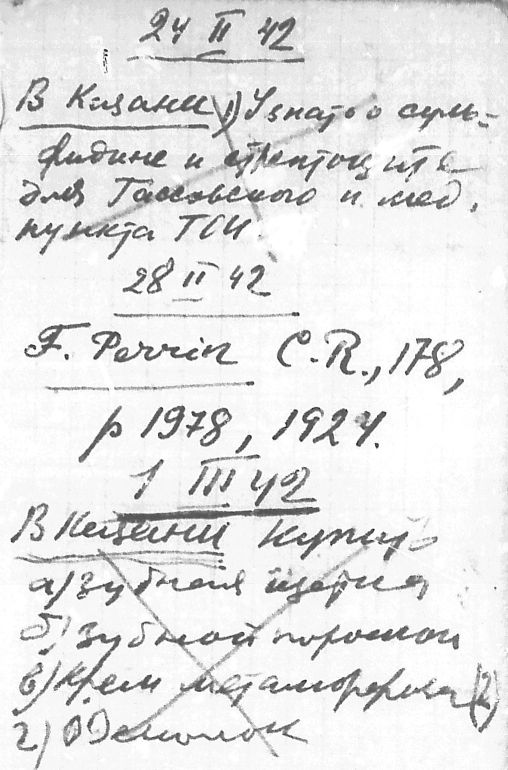 24 II 42
В Казани 1) Узнать о суль=
фидине и стрептоците
для Гассовского и мед.
пункта ГОИ.
28 II 42
F. Perrin C.R., 178,
p 1978, 1924.
1 III 42
В Казани купить
а) зубная щетка
б) зубной порошок
в) крем метаморфоза (2)
г) Одеколон